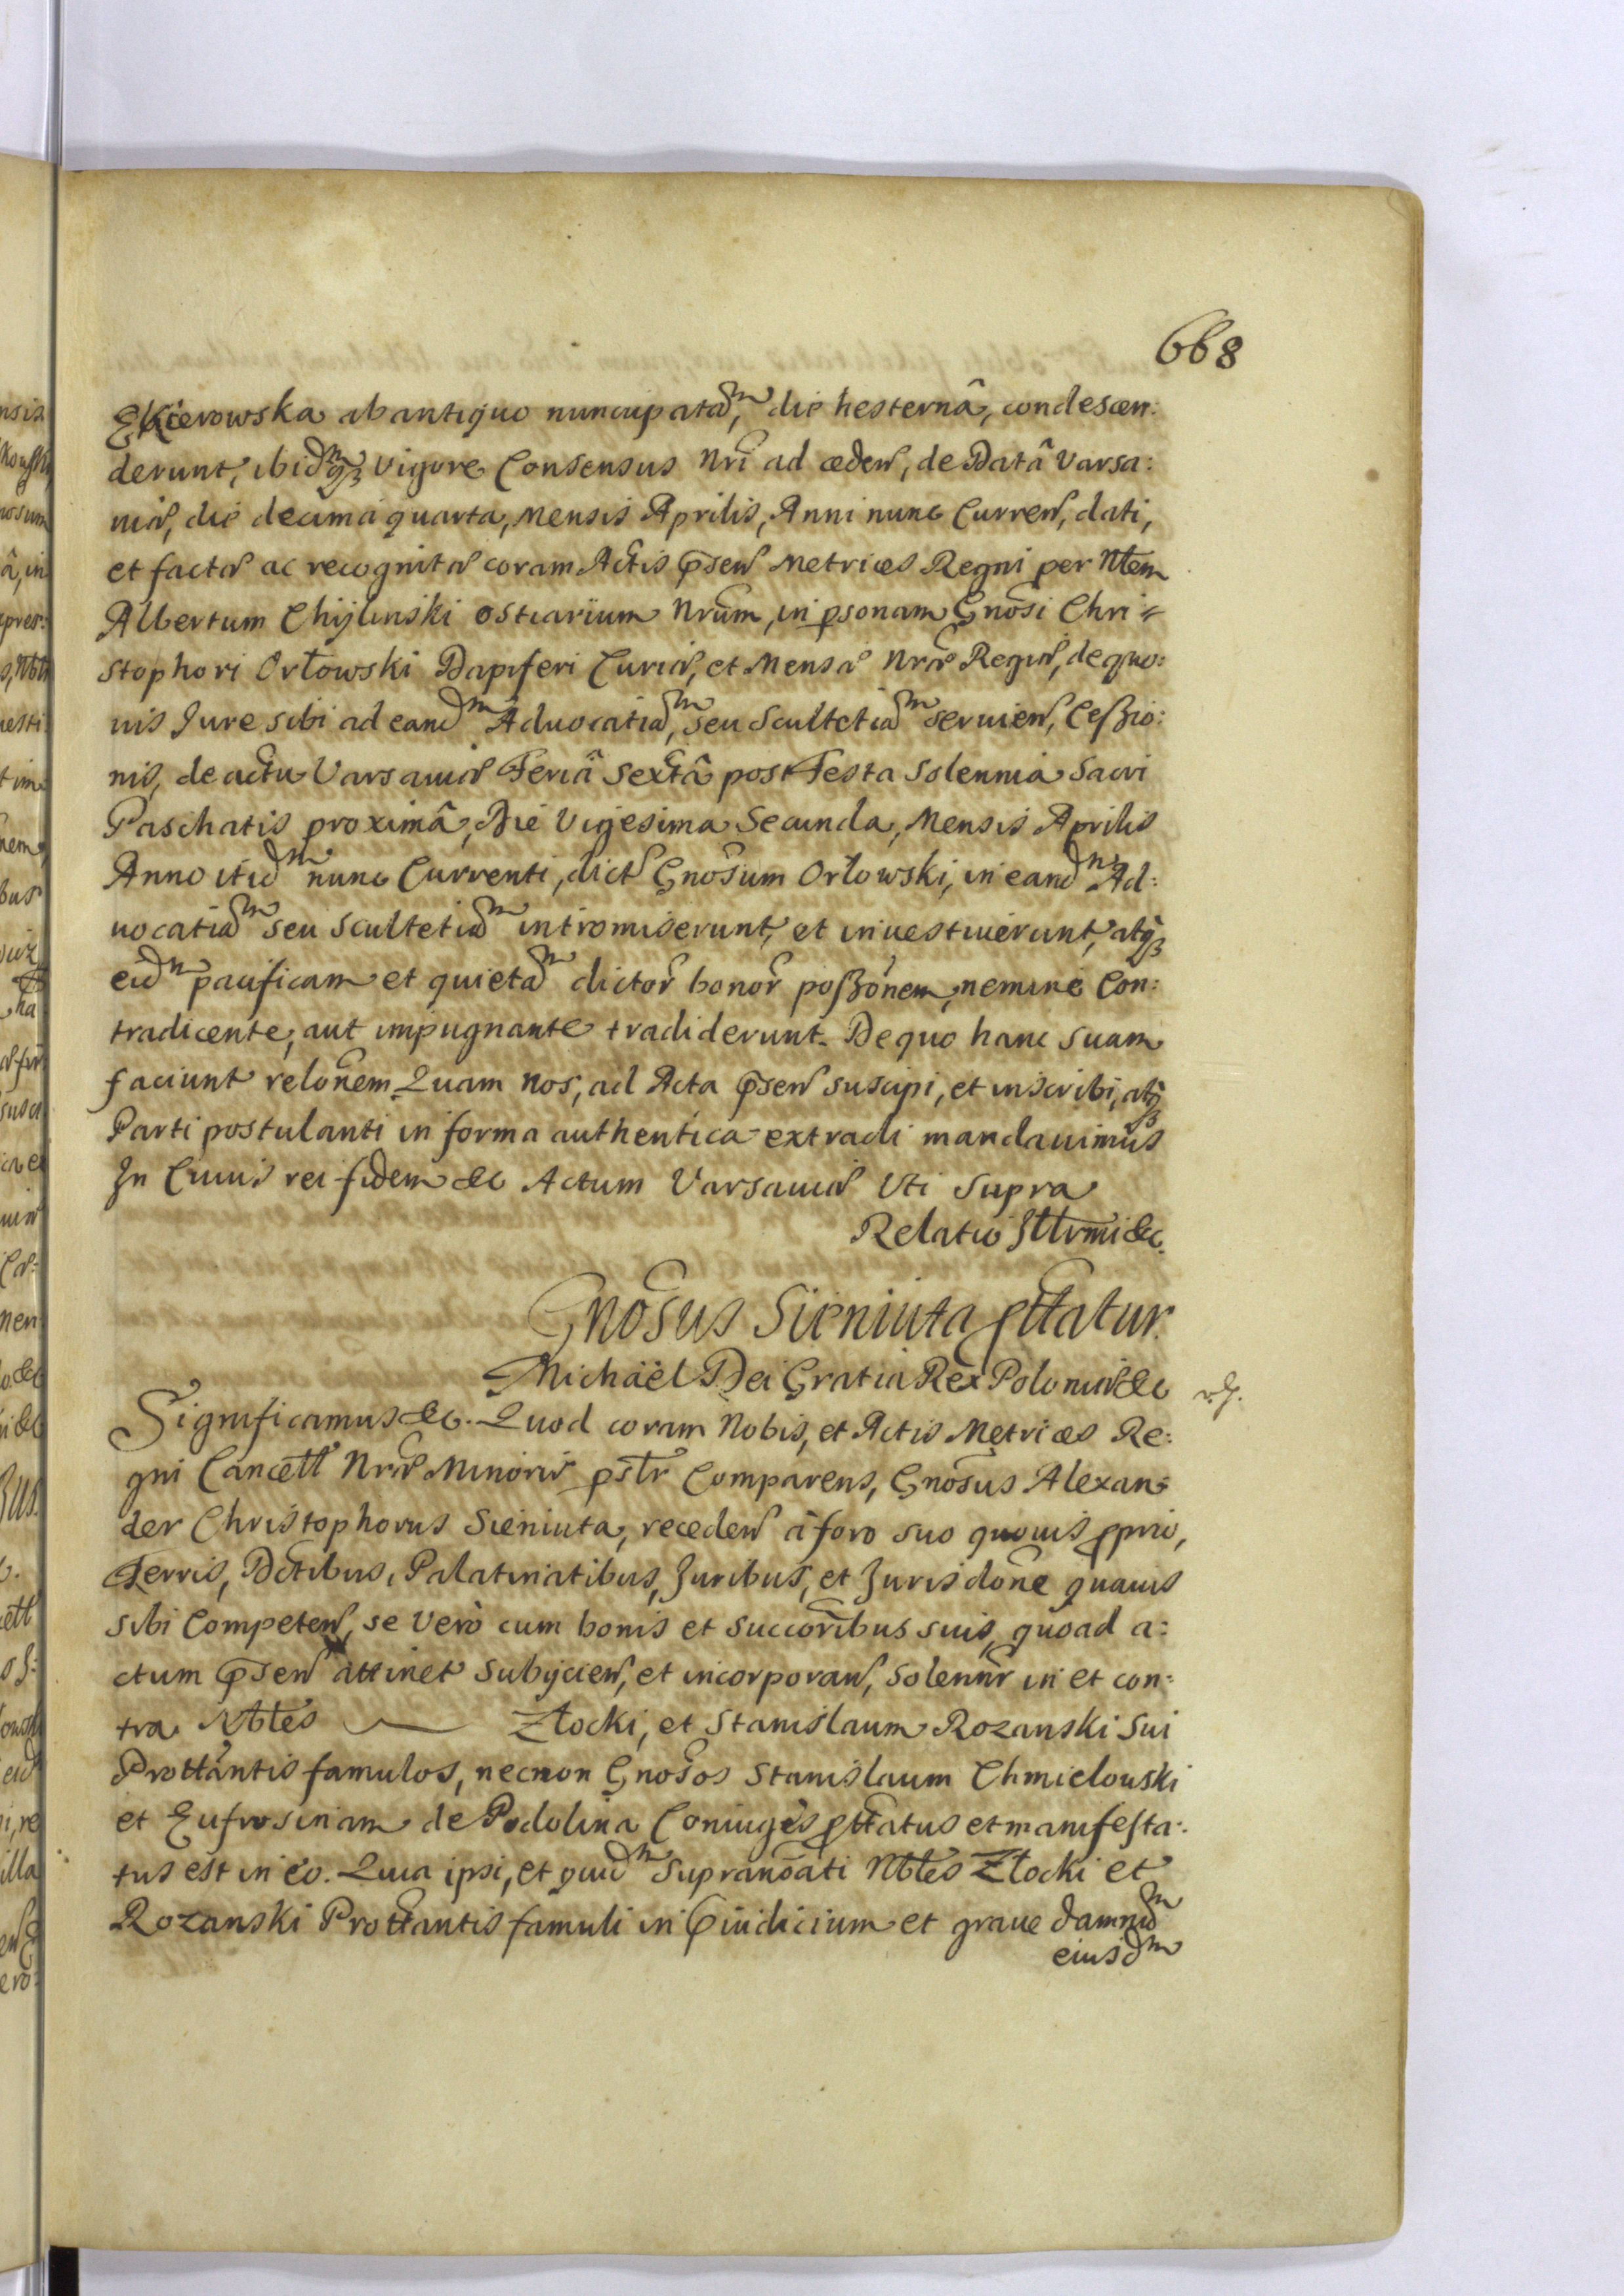 668
Ekierowska ab antiquo nuncupatam, die hesternâ, condescen:
derunt, ibidmqz vigore Consensus Nri ad cedend, de Datâ Varsa:
viæ, die decima quarta, Mensis Aprilis, Anni nunc Curren, dati,
et factæ ac recognitæ coram Actis pñsen Metrices Regni per Nblem
Albertum Chijlinski Ostiarium Nrum, in psonam Gnosi Chri=
stophori Orłowski Dapiferi Curiæ, et Mensæ Nræ Regiæ, de quo:
uis Jure sibi ad eandm Aduocatiam, seu Scultetiam seruien, Ceßio:
nis, de actu Varsauiæ Feriâ Sextâ post Festa Solennia Sacri
Paschatis proximâ, Die Vigesima Secunda, Mensis Aprilis
Anno itidm nunc Currenti, dict Gnosum Orłowski, in eandm Ad:
uocatiam seu Scultetiam intromiserunt, et inuestiuerunt, atqz
eidm pacificam et quietam dictor bonor poßonem, nemine Con:
tradicente, aut impugnante tradiderunt. De quo hanc suam
faciunt relonem. Quam nos, ad Acta pñsen suscipi, et inscribi, atqz
Parti postulanti in forma authentica extradi mandauimus
In Cuius rei fidem &c Actum Varsauiæ Uti Supra
Relatio Illrmi &c.
Gnosus Sieniuta pttatur.
Michaël Dei Gratia Rex Poloniæ &c
Significamus &c. Quod coram Nobis, et Actis Metrices Re:
gni Cancell Nræ Minoris pstr Comparens, Gnosus Alexan=
der Christophorus Sieniuta, receden à foro suo quouis pprio,
Terris, Dctibus, Palatinatibus, Juribus, et Jurisdone quauis
sibi Competen, se verò cum bonis et succoribus suis, quoad a:
ctum pñsen attinet subijcien, et incorporan, Solennr in et con:
tra Nbles Złocki, et Stanislaum Rozanski sui
Prottantis famulos, necnon Gnosos Stanislaum Chmielouski
et Eufrosinam de Podolina Coniuges pttatus et manifesta:
tus est in eo. Quia ipsi, et quidm supranoati Nbles Złocki et
Rozanski Prottantis famuli in piudicium et graue damnum
eiusdm